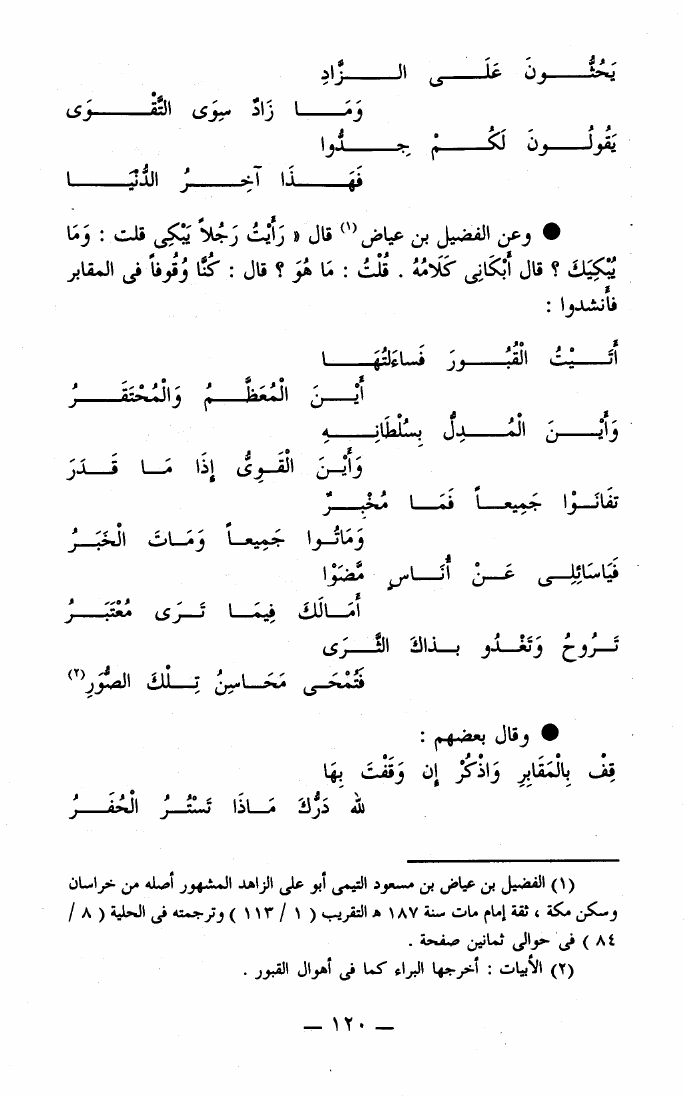 يَحُثُّونَ عَلَى الزَّادِ
وَمَا زَادٌ سِوَى التَّقْوَى
يَقُولُونَ لَكُمْ جِدُّوا
فَهَذَا آخِرُ الدُّنْيَا
● وعن الفضيل بن عياض (١) قال « رَأَيْتُ رَجُلاً يَبْكِى قلت : وَمَا
يُبْكِيَكَ ؟ قال أَبْكَانِى كَلَامُهُ . قُلْتُ : مَا هُوَ ؟ قال : كُنَّا وُقُوفاً فى المقابر
فأنشدوا :
أَتَيْتُ الْقُبُورَ فَسَاءَلتُهَا
أَيْنَ الْمُعَظَّمُ وَالْمُحْتَقَرُ
وَأَيْنَ الْمُدِلُّ بِسُلْطَانِهِ
وَأَيْنَ الْقَوِىُّ إِذَا مَا قَدَرَ
تفَانَوْا جَمِيعاً فَمَا مُخْبِرٌ
وَمَاتُوا جَمِيعاً وَمَاتَ الْخَبَرُ
فَيَاسَائِلِى عَنْ أُنَاسٍ مَّضَوْا
أَمَالَكَ فِيمَا تَرَى مُعْتَبَرُ
تَرُوحُ وَتَغْدُو بذاكَ الثَّرَى
فَتُمْحَى مَحَاسِنُ تِلْكَ الصُّوَرِ (٢)
● وقال بعضهم :
قِفْ بِالْمَقَابِرِ وَاذْكُرْ إِن وَقَفْتَ بِهَا
لله دَرُّكَ مَاذَا تَسْتُرُ الْحُفَرُ
(١) الفضيل بن عياض بن مسعود التيمى أبو على الزاهد المشهور أصله من خراسان
وسكن مكة ، ثقة إمام مات سنة ١٨٧ هـ التقريب ( ١ / ١١٣ ) وترجمته فى الحلية ( ٨ /
٨٤ ) فى حوالى ثمانين صفحة .
(٢) الأبيات : أخرجها البراء كما فى أهوال القبور .
— ١٢٠ —